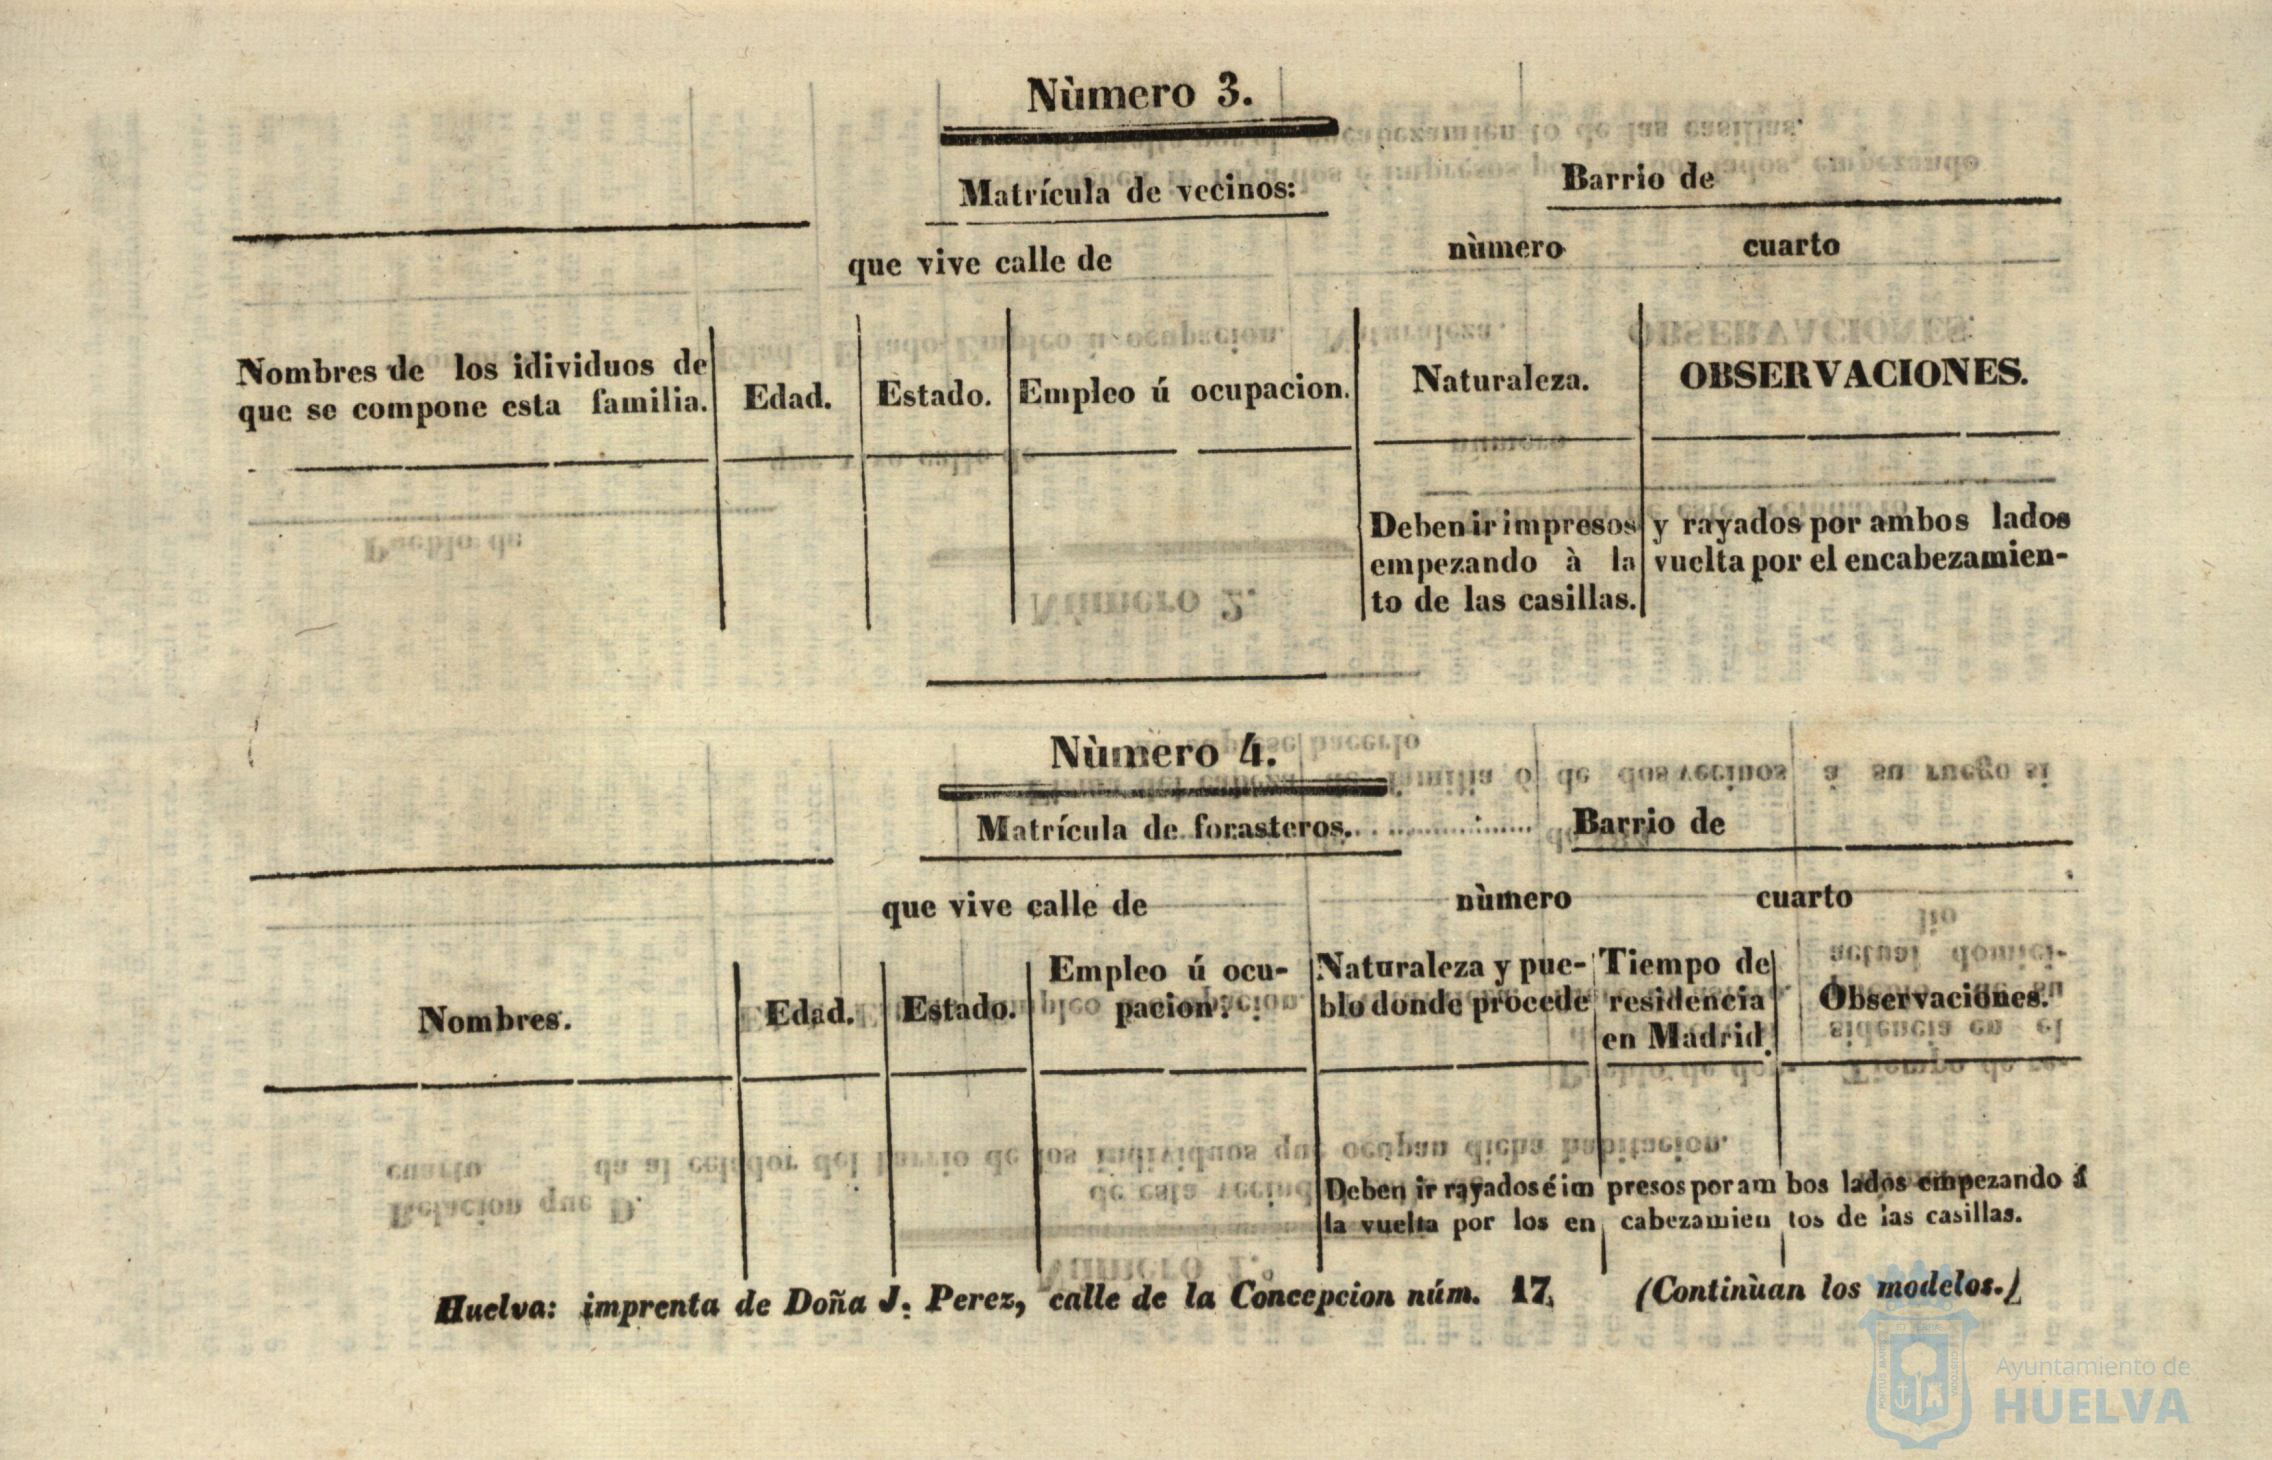 Nùmero 3.
Matrícula de vecinos:
Barrio de
que vive calle de nùmero cuarto
Nombres de los idividuos de
que se compone esta familia.
Edad.
Estado.
Empleo ú ocupacion.
Naturaleza.
OBSERVACIONES.
Deben ir impresos y rayados por ambos lados
empezando à la vuelta por el encabezamien-
to de las casillas.
Nùmero 4.
Matrícula de forasteros. Barrio de
que vive calle de nùmero cuarto
Nombres.
Edad.
Estado.
Empleo ú ocu-
pacion.
Naturaleza y pue-
blo donde procede
Tiempo de
residencia
en Madrid.
Observaciones.
Deben ir rayados é im presos por am bos lados empezando á
la vuelta por los en cabezamien tos de las casillas.
Huelva: imprenta de Doña J. Perez, calle de la Concepcion núm. 17. (Continùan los modelos.)
Ayuntamiento de
HUELVA